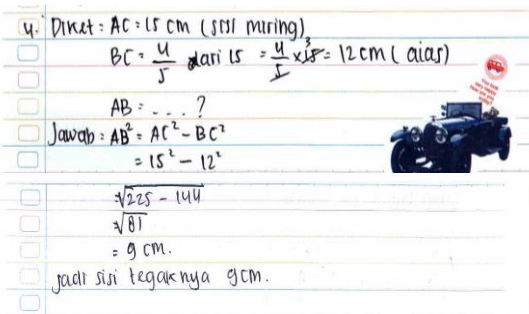 4. Diket : AC = 15 cm (sisi miring)
BC = 4/5 dari 15 = 4/5 x 15 3 = 12 cm ( alas)
AB = . . . ?
Jawab : AB² = AC² - BC²
= 15² - 12²
= √225 - 144
= √81
= 9 cm.
jadi sisi tegaknya 9 cm.